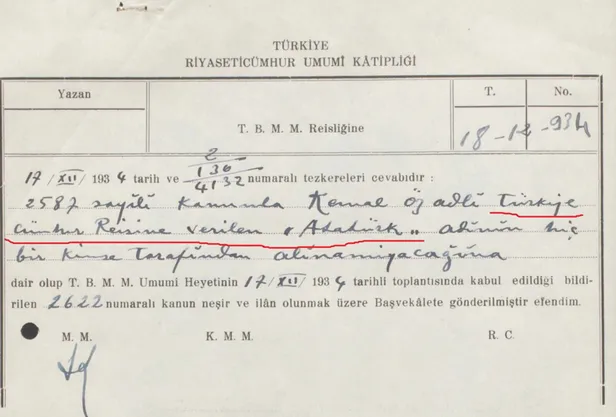 TÜRKİYE
RİYASETİCÜMHUR UMUMÎ KÂTİPLİĞİ
Yazan
T. B. M. M. Reisliğine
T.
No.
18-12-934
17/XII/ 1934 tarih ve 2/136/4132 numaralı tezkereleri cevabıdır :
2587 sayılı kanunla Kemal öz adlı Türkiye
cümhur Reisine verilen "Atatürk" adının hiç
bir kimse tarafından alınamıyacağına
dair olup T. B. M. M. Umumi Heyetinin 17/XII/ 1934 tarihli toplantısında kabul edildiği bildi-
rilen 2622 numaralı kanun neşir ve ilân olunmak üzere Başvekâlete gönderilmiştir efendim.
M. M.
K. M. M.
R. C.